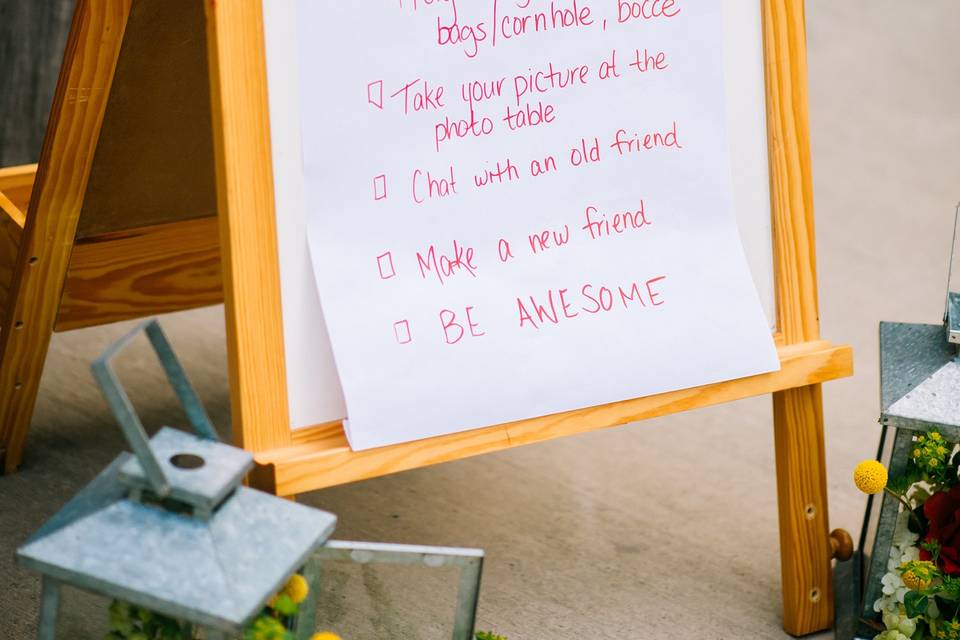 bags/cornhole, bocce
Take your picture at the
photo table
Chat with an old friend
Make a new friend
BE AWESOME